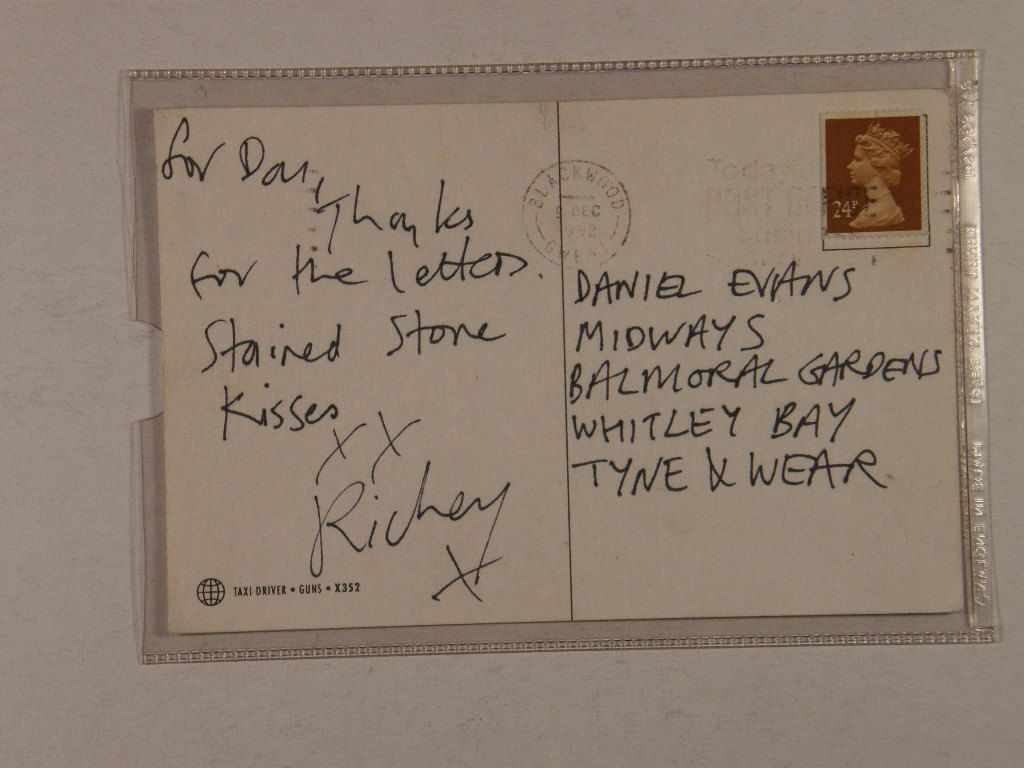 For Dan,
Thanks
for the letters.
Stained Stone
Kisses
X X
Richey
X
TAXI DRIVER • GUNS • X352
BLACKWOOD
9 DEC
1992
24P
DANIEL EVANS
MIDWAYS
BALMORAL GARDENS
WHITLEY BAY
TYNE & WEAR